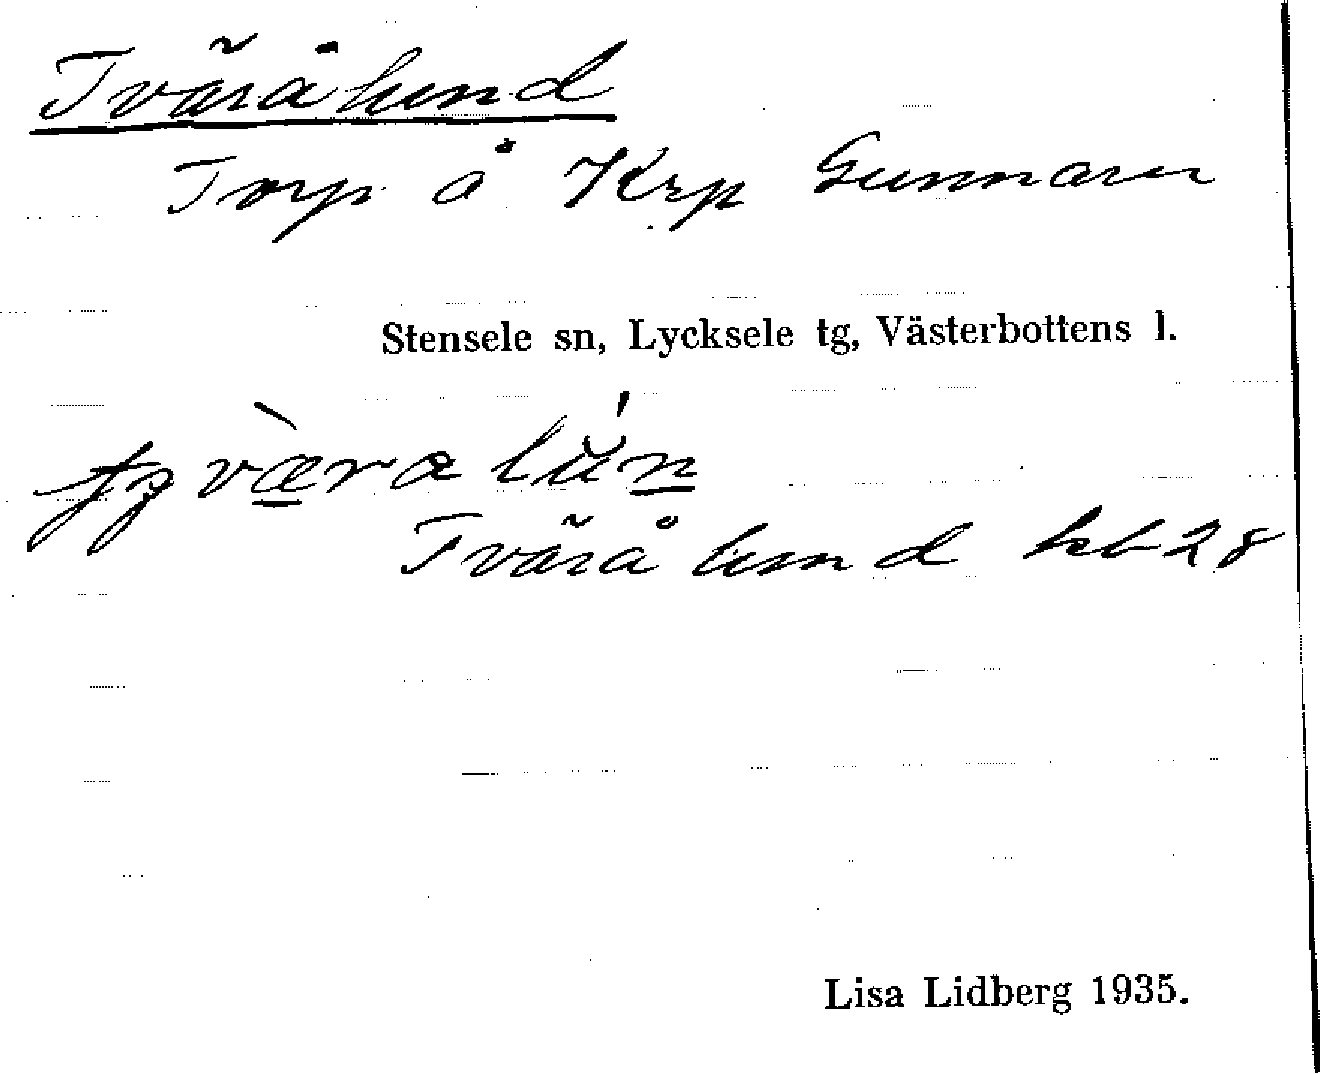 Tväråhund
Torp å Krp Gunnarn
Stensele sn, Lycksele tg, Västerbottens l.
Tvärålund kb 28
Lisa Lidberg 1935.